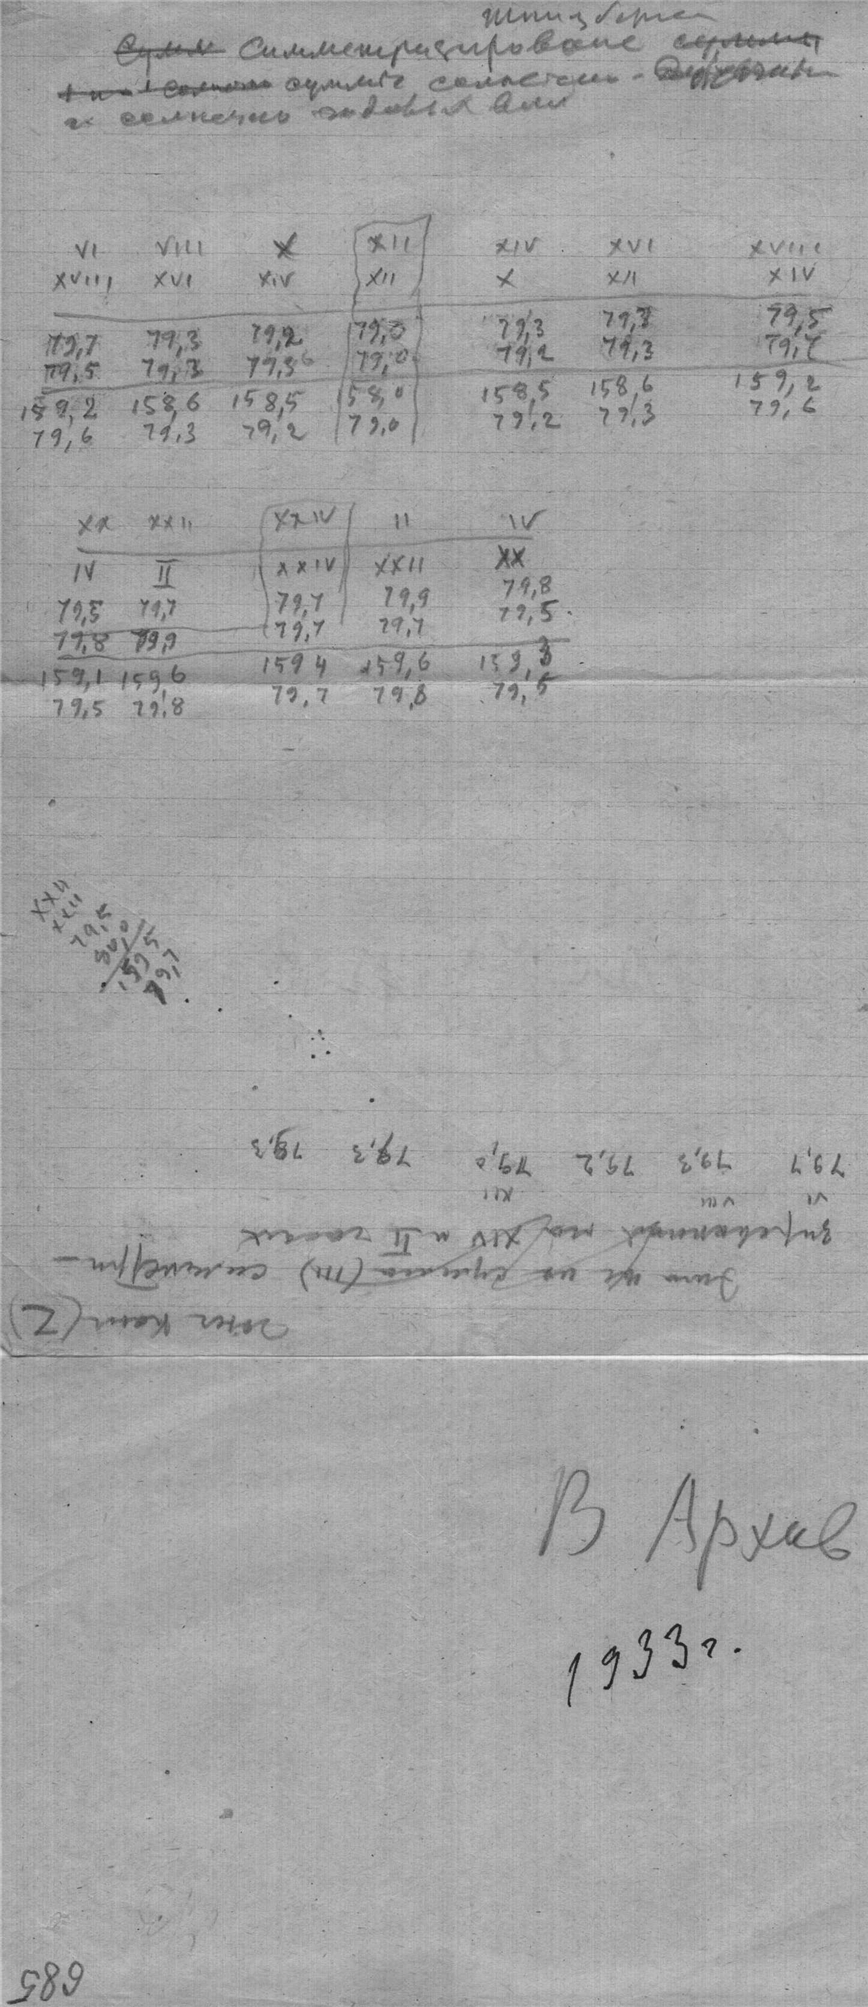 Шпицберген
Сумм Симметрирование суммы
суммы солнечно-
и солнечно годовых
VI VIII X XII XIV XVI XVIII
XVIII XVI XIV XII X XII XIV
79,7 79,3 79,2 79,0 79,3 79,3 79,5
79,5 79,3 79,3 79,0 79,2 79,3 79,7
159,2 158,6 158,5 158,0 158,5 158,6 159,2
79,6 79,3 79,2 79,0 79,2 79,3 79,6
XX XXII XXIV II IV
IV II XXIV XXII XX
79,3 79,7 79,7 79,9 79,8
79,8 79,9 79,7 79,7 79,5
159,1 159,6 159 4 159,6 159,3
79,5 79,8 79,7 79,8 79,5
XXII
XXII
79,5
80,0
159 5
79,7
(Z)
же из сумма (III) симметри-
на XIV и II часах
VI VIII XII
79,7 79,3 79,0 79,2 79,3 79,3
В Архив
1933 г.
685